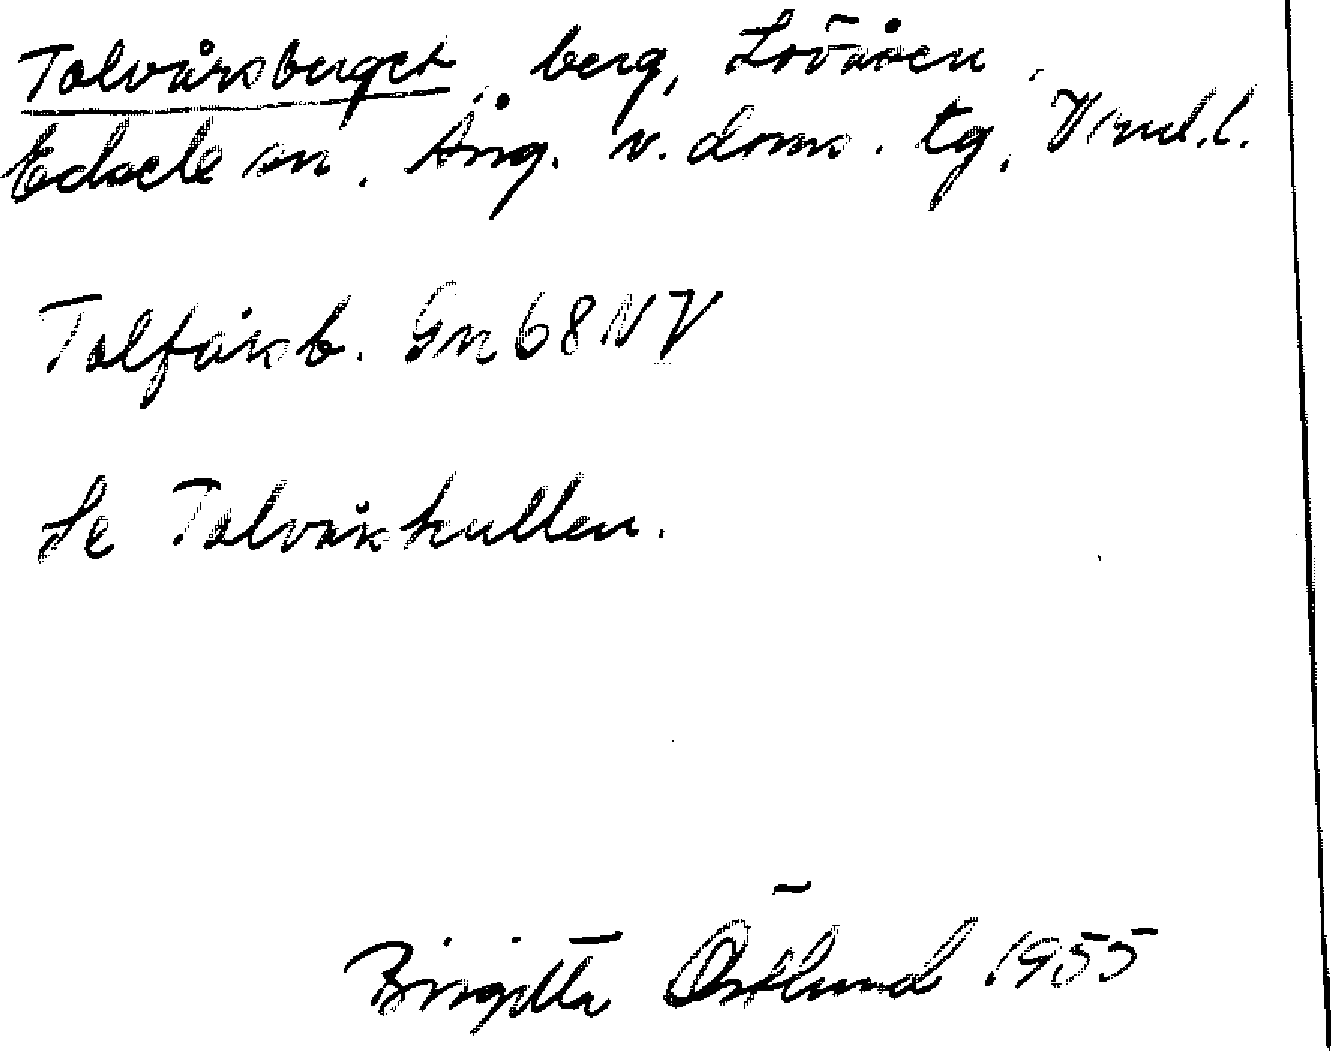 Talvårsberget, berg, Lövåsen,
Edsele sn. Ång. v. doms. tg, Vnd.l.
Talfåksb. Gn 68 NV
Se Talvåkhullen.
Birgitta Östlund 1955